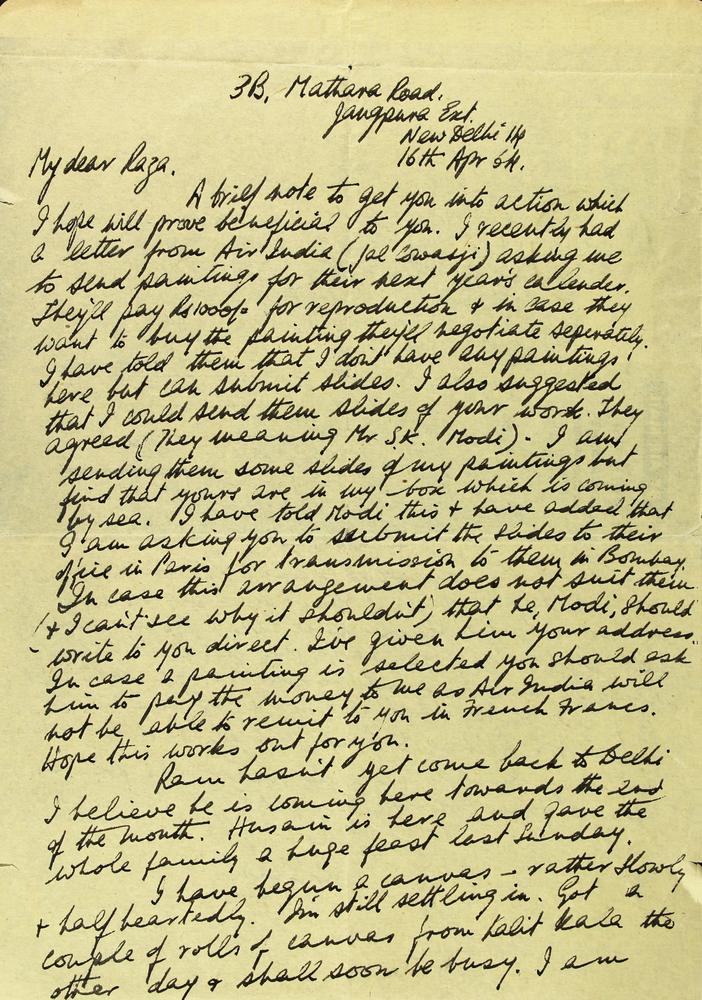 3B, Mathura Road.
Jangpura Ext.
New Delhi 14
16th Apr 64.
My dear Raza,
A brief note to get you into action which
I hope will prove beneficial to you. I recently had
a letter from Air India (Jal Cowasji) asking me
to send paintings for their next year's calender.
They'll pay Rs1000/- for reproduction & in case they
want to buy the painting they'll negotiate seperately.
I have told them that I don't have any paintings
here but can submit slides. I also suggested
that I could send them slides of your work. They
agreed (They meaning Mr S.K. Modi). I am
sending them some slides of my paintings but
find that yours are in my box which is coming
by sea. I have told Modi this & have added that
I am asking you to submit the slides to their
office in Paris for transmission to them in Bombay.
In case this arrangement does not suit them
(& I can't see why it shouldn't) that he, Modi, should
write to you direct. I've given him your address.
In case a painting is selected you should ask
him to pay the money to me as Air India will
not be able to remit to you in French Francs.
Hope this works out for you.
Ram hasn't yet come back to Delhi
I believe he is coming here towards the end
of the month. Husain is here and gave the
whole family a huge feast last Sunday.
I have begun a canvas - rather slowly
& half heartedly. I'm still settling in. Got a
couple of rolls of canvas from Lalit Kala the
other day & shall soon be busy. I am